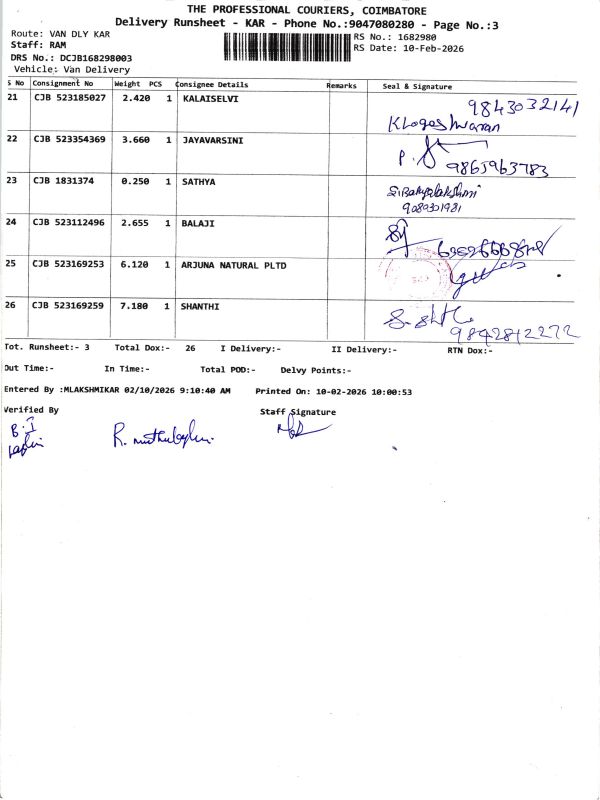 THE PROFESSIONAL COURIERS, COIMBATORE
Delivery Runsheet - KAR - Phone No.:9047080280 - Page No.:3
Route: VAN DLY KAR
RS No.: 1682980
Staff: RAM
RS Date: 10-Feb-2026
DRS No.: DCJB168298003
Vehicle: Van Delivery
S No Consignment No Weight PCS Consignee Details Remarks Seal & Signature
21 CJB 523185027 2.420 1 KALAISELVI 9843032141
22 CJB 523354369 3.660 1 JAYAVARSINI P. 9865963783
23 CJB 1831374 0.250 1 SATHYA
9089301981
24 CJB 523112496 2.655 1 BALAJI
25 CJB 523169253 6.120 1 ARJUNA NATURAL PLTD
26 CJB 523169259 7.180 1 SHANTHI
9842842272
Tot. Runsheet:- 3 Total Dox:- 26 I Delivery:- II Delivery:- RTN Dox:-
Out Time:- In Time:- Total POD:- Delvy Points:-
Entered By :MLAKSHMIKAR 02/10/2026 9:10:40 AM Printed On: 10-02-2026 10:00:53
Verified By Staff Signature